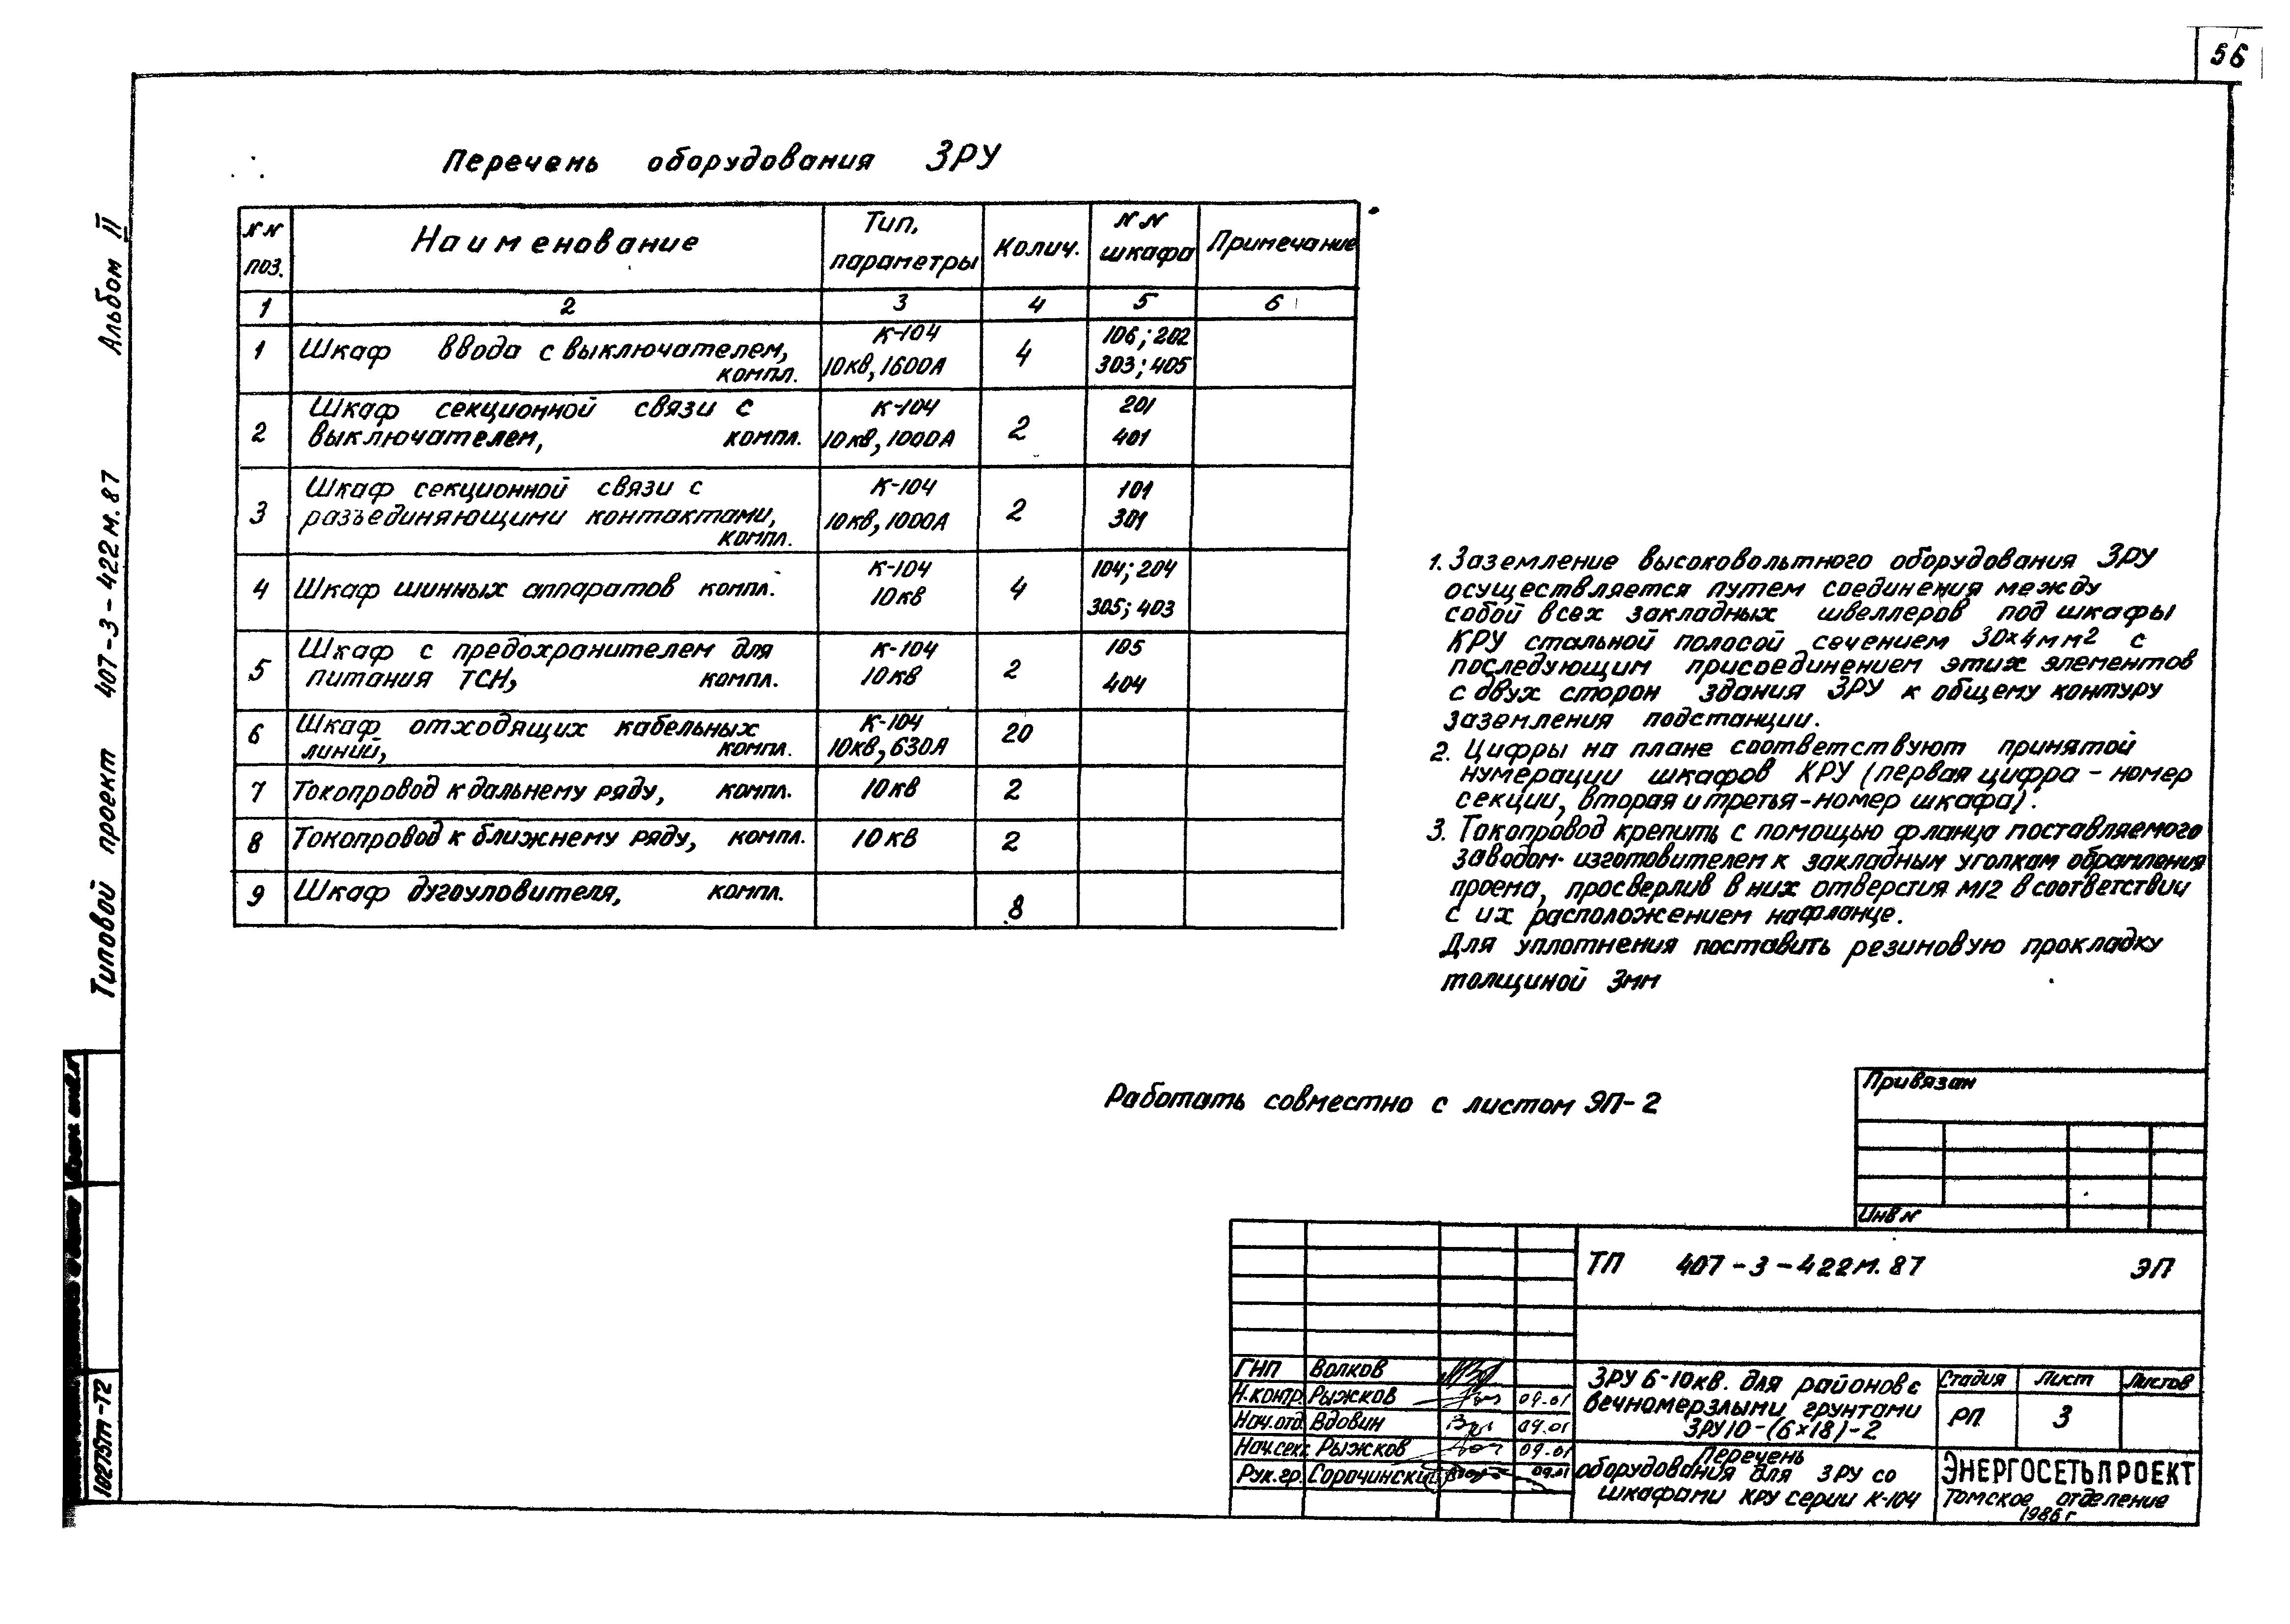 56
Альбом II
Типовой проект 407-3-422м.87
Перечень оборудования ЗРУ
NN поз. Наименование Тип, параметры Колич. NN шкафа Примечание
1 2 3 4 5 6
1 Шкаф ввода с выключателем, К-104 4 106; 202
компл. 10кв, 1600А 303; 405
2 Шкаф секционной связи с К-104 2 201
выключателем, компл. 10кв, 1000А 401
3 Шкаф секционной связи с К-104 2 101
разъединяющими контактами, 10кв, 1000А 301
компл.
4 Шкаф шинных аппаратов компл. К-104 4 104; 204
10кв 305; 403
5 Шкаф с предохранителем для К-104 2 105
питания ТСН, компл. 10кв 404
6 Шкаф отходящих кабельных К-104 20
линий, компл. 10кв, 630А
7 Токопровод к дальнему ряду, компл. 10кв 2
8 Токопровод к ближнему ряду, компл. 10кв 2
9 Шкаф дугоуловителя, компл. 8
1. Заземление высоковольтного оборудования ЗРУ
осуществляется путем соединения между
собой всех закладных швеллеров под шкафы
КРУ стальной полосой сечением 30×4мм2 с
последующим присоединением этих элементов
с двух сторон здания ЗРУ к общему контуру
заземления подстанции.
2. Цифры на плане соответствуют принятой
нумерации шкафов КРУ (первая цифра - номер
секции, вторая и третья - номер шкафа).
3. Токопровод крепить с помощью фланца поставляемого
заводом-изготовителем к закладным уголкам обрамления
проема, просверлив в них отверстия М12 в соответствии
с их расположением на фланце.
Для уплотнения поставить резиновую прокладку
толщиной 3мм
Работать совместно с листом ЭП-2
Привязан
Инв N
ТП 407-3-422м.87 ЭП
ГНП Волков
Н.контр. Рыжков 09.01
Нач.отд. Вдовин 09.01
Нач.секц. Рыжков 09.01
Рук.гр. Сорочинский 09.01
ЗРУ 6-10кв. для районов с
вечномерзлыми грунтами
ЗРУ10-(6×18)-2
Стадия Лист Листов
РП 3
Перечень
оборудования для ЗРУ со
шкафами КРУ серии К-104
ЭНЕРГОСЕТЬПРОЕКТ
Томское отделение
1986г
10275тм-т2